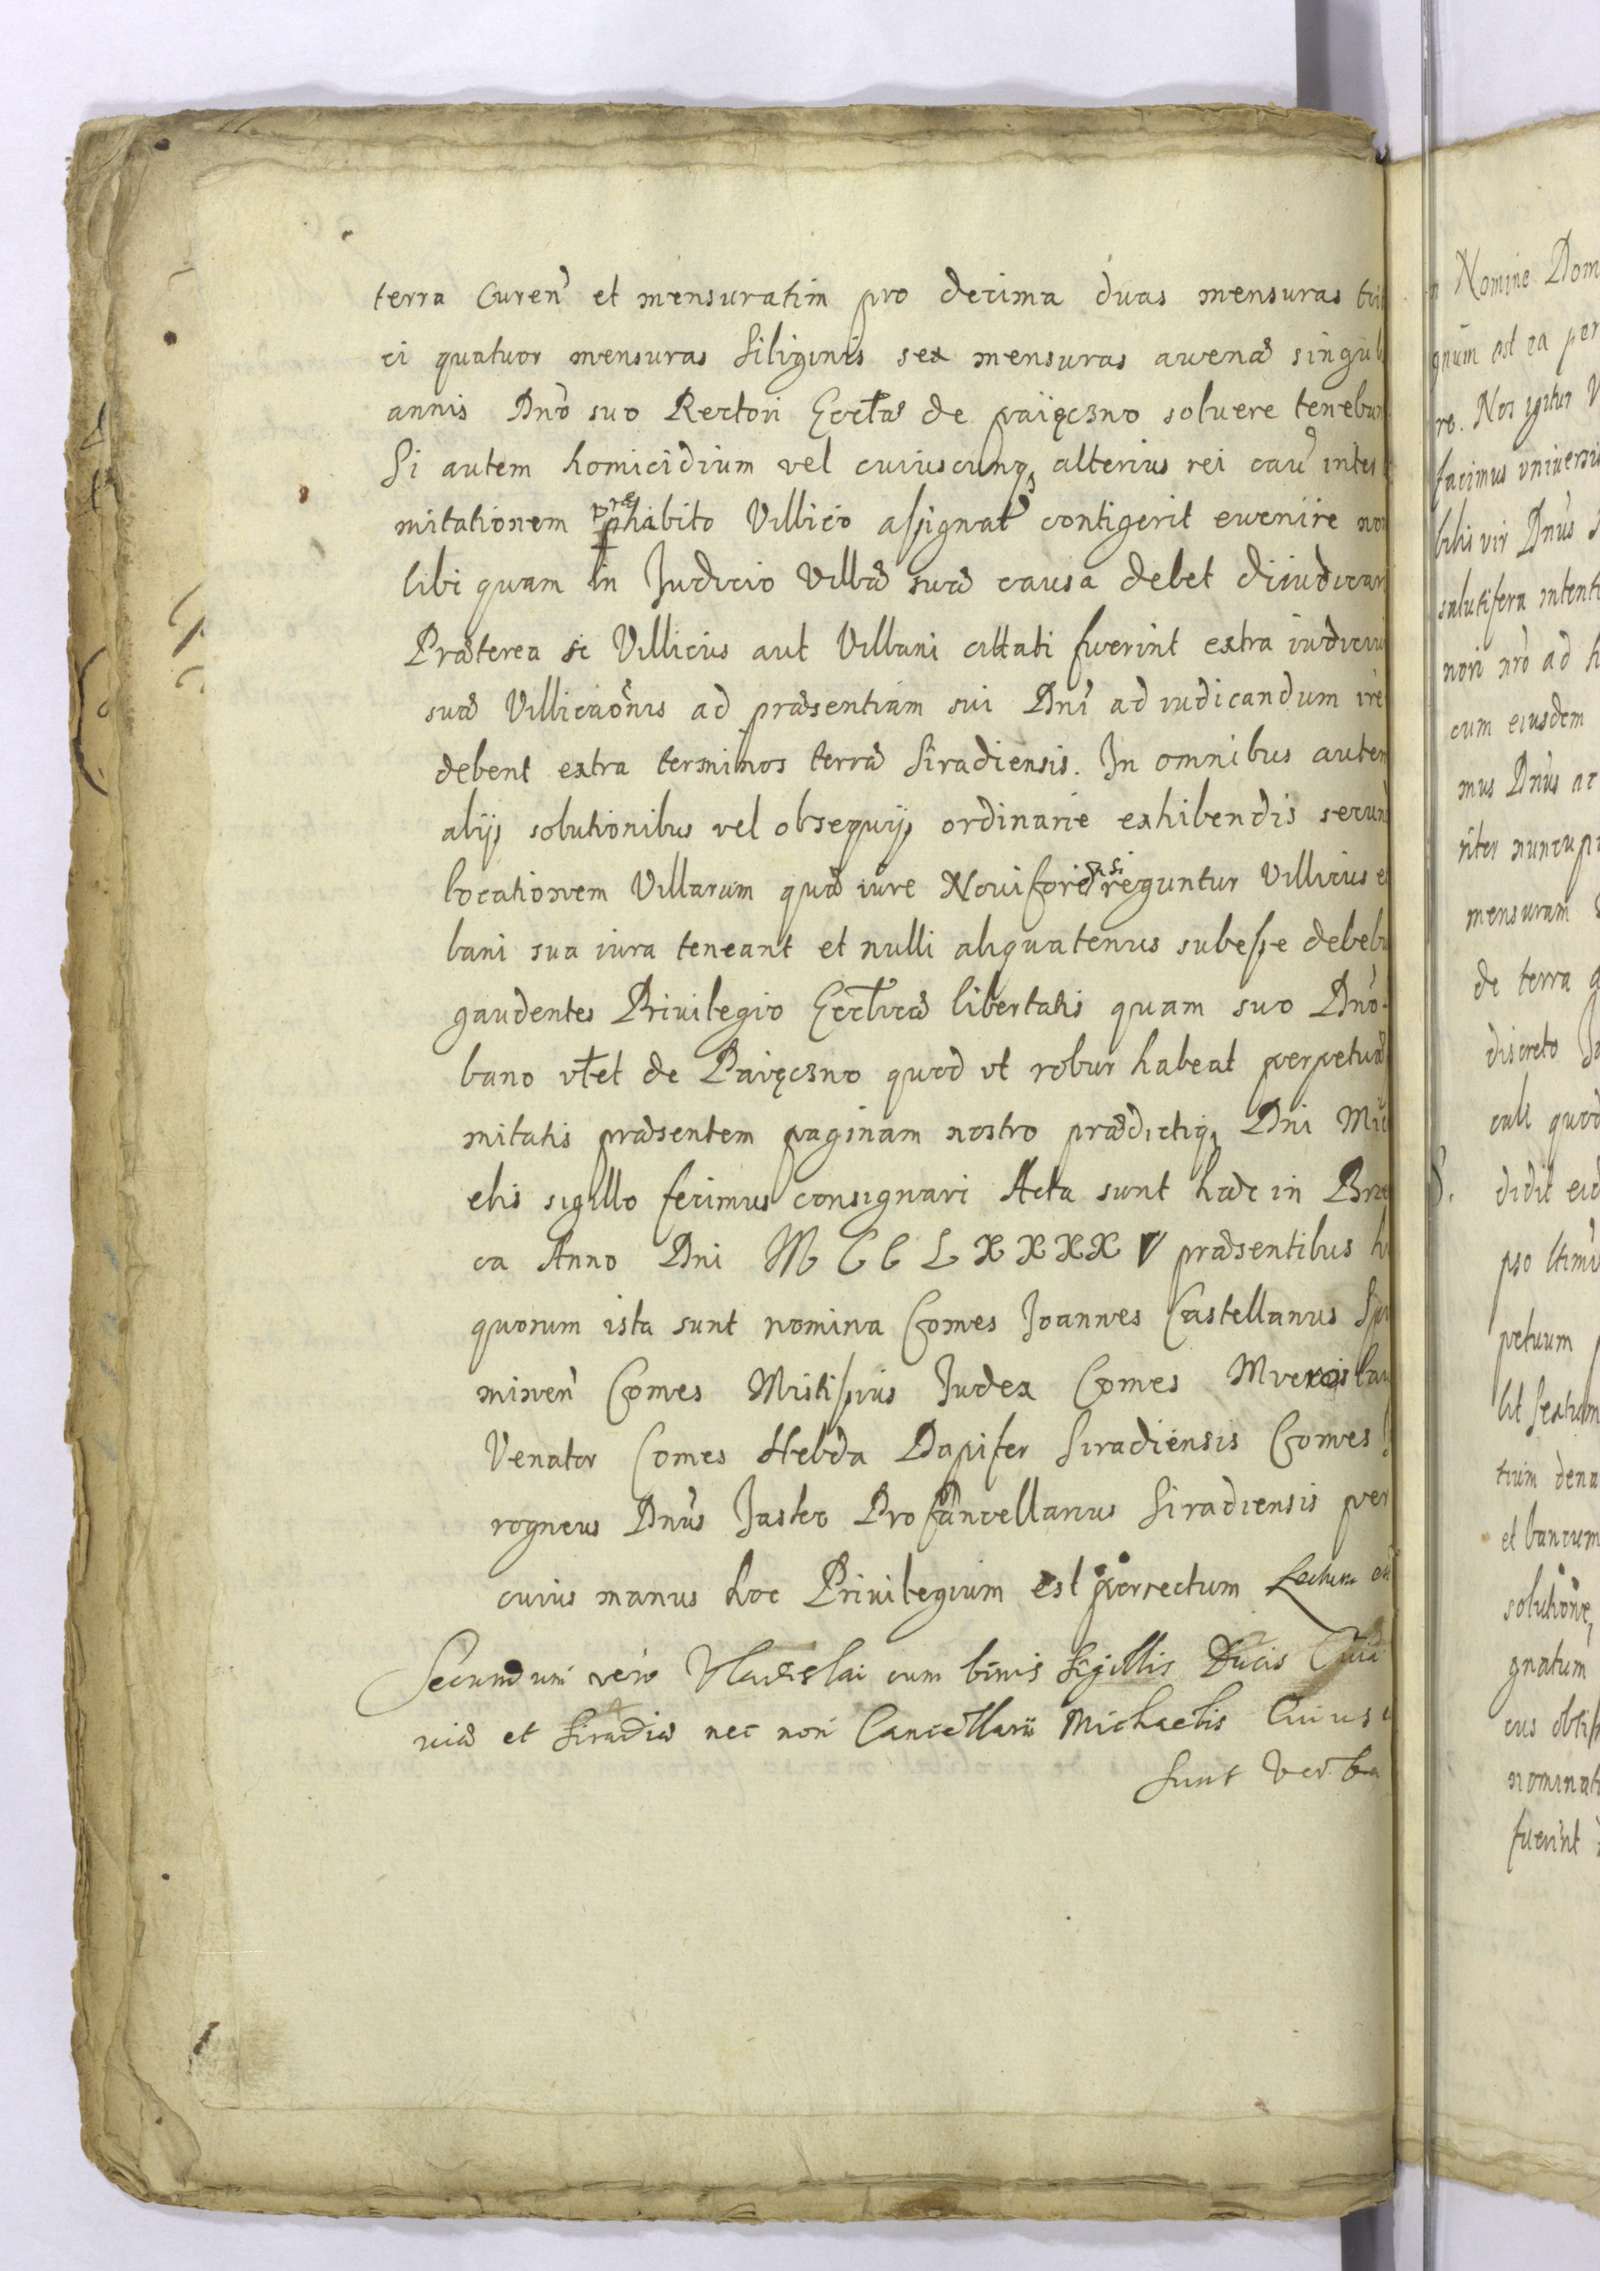 terra Curen̄ et mensuratim pro decima duas mensuras tri
ci quatuor mensuras siliginis sex mensuras avenæ singul
annis Dn̄o suo Rectori Eccłæ de paięczno soluere tenebun
Si autem homicidium vel cuiuscunq, alterius rei cau inter
mitationem præhabito Villico assignat contigerit evenire non
libi quam in Judicio Villæ suæ causa debet diiudicar
Præterea si Villicus aut Villani cittati fuerint extra iudiciu
suæ Villicaōnis ad præsentiam sui Dn̄i ad iudicandum ire
debent extra terminos terræ Siradiensis. In omnibus autem
alijs solutionibus vel obsequijs ordinarie exhibendis secun
locationem Villarum quæ iure Noviforensi reguntur Villicus e
bani sua iura teneant et nulli aliquatenus subesse debebu
gaudentes Privilegio Eccłicæ libertatis quam suo Dn̄o
bano vt̄et de Paięczno quod ut robur habeat perpetuæ
mitatis præsentem paginam nostro prædictiq, Dni Mic
elis sigillo fecimus consignari Acta sunt hæc in Brze
ca Anno Dni M C C L X X X X V præsentibus h
quorum ista sunt nomina Comes Joannes Castellanus Spi
miren̄ Comes Mistipius Judex Comes Mveroslau
Venator Comes Hebda Dapifer Siradiensis Comes
rogneus Dn̄us Jasko Procancellarius Siradiensis per
cuius manus hoc Privilegium est porrectum Lectum
Secundum vero Vladislai cum binis sigillis Ducis Cuia
viæ et Siradiæ nec non Cancellarii Michaelis Cuius
sunt verba
Nomine Dom
gnum est ea per
re. Nos igitur V
facimus vniversis
bilis vir Dn̄us
salutifera intenti
nori nr̄o ad h
cum eiusdem
mus Dn̄us ac
riter nuncupa
mensuram
de terra
discreto Ja
cali quod
didit eid
pso
petuum
lit sextum
trium dena
et bancum
solutione,
gnatum
cus
nominat
fuerint